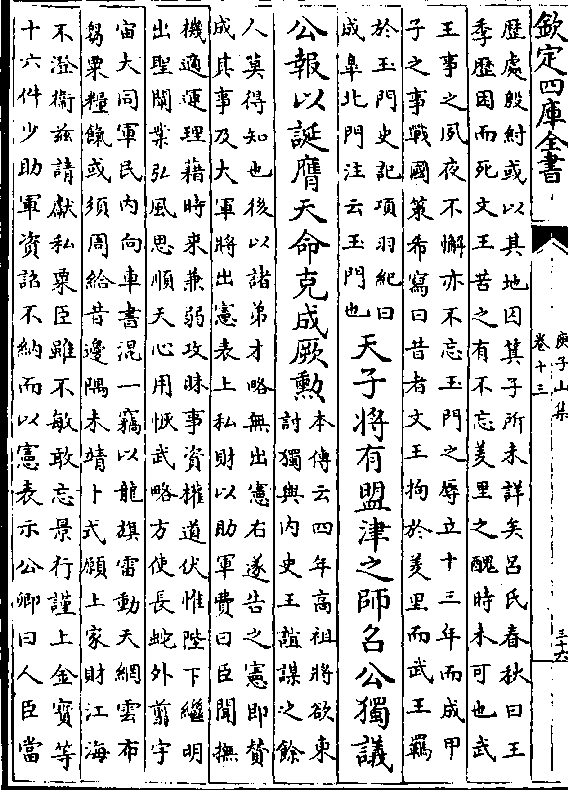 欽定四庫全書
庾子山集
卷十三
三十六
歴處殷紂或以其地囚箕子所未詳矣呂氏春秋曰王
季歴困而死文王苦之有不忘羑里之醜時未可也武
王事之夙夜不懈亦不忘玉門之辱立十三年而成甲
子之事戰國策希寫曰昔者文王拘於羑里而武王羈
於玉門史記項羽紀曰
成臯北門注云玉門也
天子將有盟津之師名公獨議
公報以誕膺天命克成厥勲
本傳云四年高祖將欲東
討獨與内史王誼謀之餘
人莫得知也後以諸弟才略無出憲右遂告之憲即贊
成其事及大軍將出憲表上私財以助軍費曰臣聞撫
機適運理藉時來兼弱攻昧事資權道伏惟陛下繼明
出聖闡業弘風思順天心用恢武略方使長蛇外翦宇
宙大同軍民内向車書混一竊以龍旗雷動天網雲布
芻粟糧餼或須周給昔邊隅未靖卜式願上家財江海
不澄衛兹請獻私粟臣雖不敏敢忘景行謹上金寳等
十六件少助軍資詔不納而以憲表示公卿曰人臣當